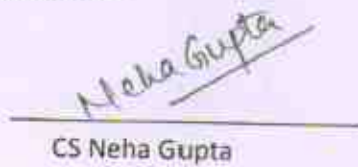 Neha Gupta
CS Neha Gupta